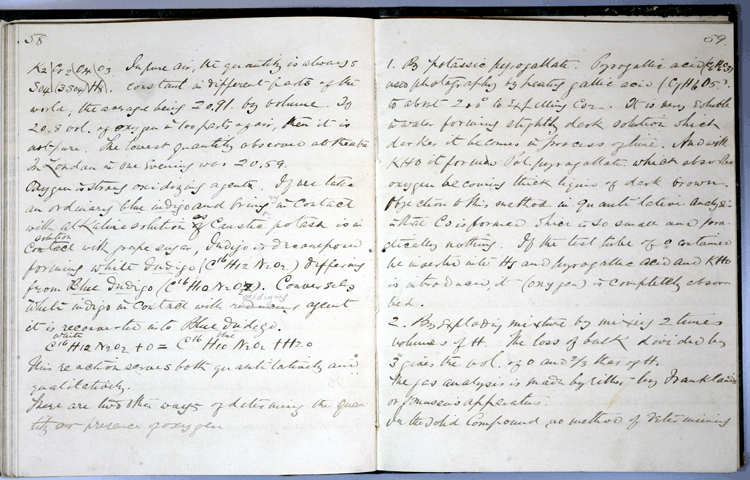 58
K2 Cr2 O4 O3 In pure air, the quantity is always
constant in different parts of the
world, the average being 20.91 by volume. If
20.8 vol. of oxygen in 100 parts of air, then it is
not pure. The lowest quantity observed at theatre
In London in one evening was 20.59.
Oxygen is strong oxidizing agents. If we take
an ordinary blue indigo and bring in contact
with alkaline solution of Caustic potash is in
solution
Contact with grape sugar, Indigo is decomposed
forming white Indigo (C16 H12 N2O2) differing
from Blue Indigo (C16 H10 N2O2). Conversely
oxidizing
white indigo in contact with agent
it is reconverted into Blue Indego.
white blue
C16 H12 N2O2 + O = C16 H10 N2O2 + H2O
This reaction serves both quantitatively and
qualitatively.
There are two other ways of determining the quan-
tity or presence of oxygen
59.
1. By potassic pyrogallate. Pyrogallic acid
used photography by heating gallic acid (C7H6O5)
to about to expelling CO2. It is very soluble
in water forming slightly dark solution which
darker it becomes in process of time. And with
KHO it forms Pot. pyrogallate which absorbs
oxygen becoming thick liquid of dark brown.
Objection to this method in quantitation analysis
is that CO is formed which is so small and prac-
tically nothing. If the test tube of O contained
be inserted into Hg and pyrogallic acid and KHO
is introduced, it (oxygen) is completely absor-
bed.
2. By Exploding mixture by mixing 2 times
volumes of H. The loss of bulk divided by
3 gives the vol. of O and 2/3 that of H.
The gas analysis is made by either by Frankland
or apparatus.
In the solid Compound, no method of determining